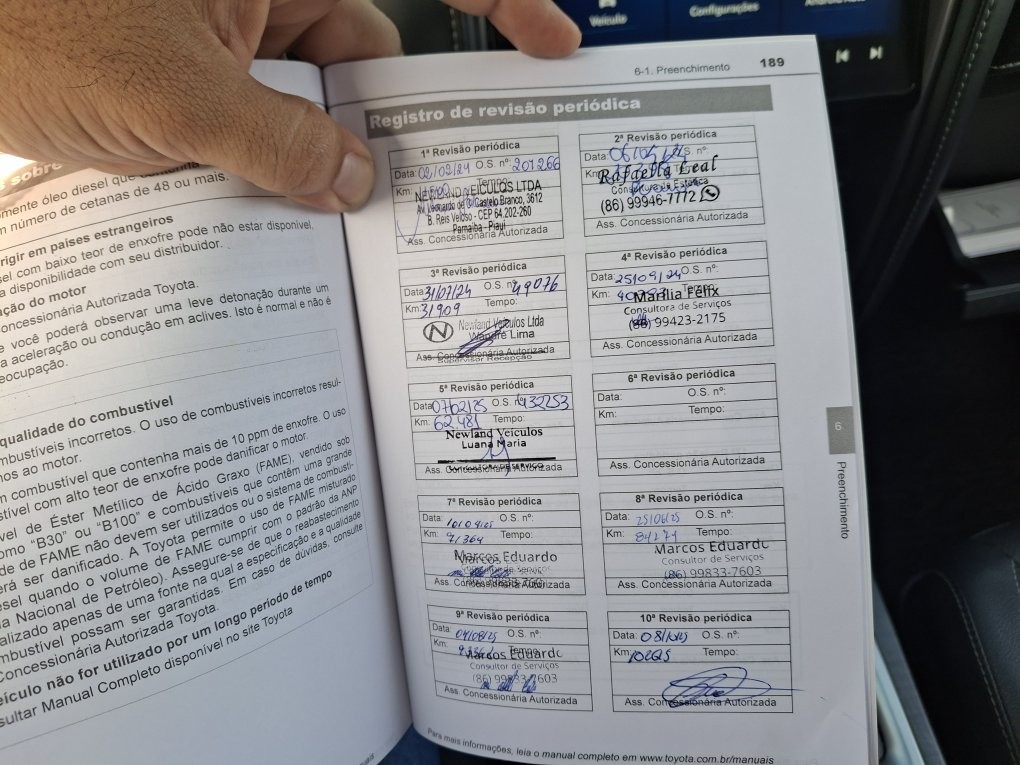 Veículo
Configurações
s sobre
mente óleo diesel que
m número de cetanas de 48 ou mais.
rigir em países estrangeiros
sel com baixo teor de enxofre pode não estar disponível.
a disponibilidade com seu distribuidor.
ação do motor
oncessionária Autorizada Toyota.
e você poderá observar uma leve detonação durante um
a aceleração ou condução em aclives. Isto é normal e não é
eocupação.
qualidade do combustível
mbustíveis incorretos. O uso de combustíveis incorretos resul-
nos ao motor.
m combustível que contenha mais de 10 ppm de enxofre. O uso
stível com alto teor de enxofre pode danificar o motor.
vel de Éster Metílico de Ácido Graxo (FAME), vendido sob
omo “B30” ou “B100” e combustíveis que contêm uma grande
de de FAME não devem ser utilizados ou o sistema de combustí-
erá ser danificado. A Toyota permite o uso de FAME misturado
esel quando o volume de FAME cumprir com o padrão da ANP
ia Nacional de Petróleo). Assegure-se de que o reabastecimento
alizado apenas de uma fonte na qual a especificação e a qualidade
mbustível possam ser garantidas. Em caso de dúvidas, consulte
Concessionária Autorizada Toyota.
eículo não for utilizado por um longo período de tempo
sultar Manual Completo disponível no site Toyota
anuais
6-1. Preenchimento 189
Registro de revisão periódica
1ª Revisão periódica
Data: 02/02/24 O.S. nº: 201266
Km:
NEWLAND VEICULOS LTDA
Av. Leonardo de C. Castelo Branco, 3612
B. Reis Veloso - CEP 64.202-260
Parnaiba - Piauí
Ass. Concessionária Autorizada
2ª Revisão periódica
Data: O.S. nº:
Km:
Rafaella Leal
(86) 99946-7712
Ass. Concessionária Autorizada
3ª Revisão periódica
Data: 31/07/24 O.S. nº: 49076
Km: 31909 Tempo:
Newland Veículos Ltda
Lima
Ass. Concessionária Autorizada
Supervisor Recepção
4ª Revisão periódica
Data: 25/09/24 O.S. nº:
Km:
Marília Félix
Consultora de Serviços
(86) 99423-2175
Ass. Concessionária Autorizada
5ª Revisão periódica
Data: 07/02/25 O.S. nº: 432253
Km: 62.481 Tempo:
Newland Veículos
Luana Maria
Ass. Concessionária Autorizada
6ª Revisão periódica
Data: O.S. nº:
Km: Tempo:
Ass. Concessionária Autorizada
7ª Revisão periódica
Data: O.S. nº:
Km: 71364 Tempo:
Marcos Eduardo
Ass. Concessionária Autorizada
8ª Revisão periódica
Data: 25/06/25 O.S. nº:
Km: 84271 Tempo:
Marcos Eduardo
Consultor de Serviços
(86) 99833-7603
Ass. Concessionária Autorizada
9ª Revisão periódica
Data: 04/08/25 O.S. nº:
Km: Tempo:
Marcos Eduardo
Consultor de Serviços
(86) 99833-7603
Ass. Concessionária Autorizada
10ª Revisão periódica
Data: O.S. nº:
Km: Tempo:
Ass. Concessionária Autorizada
6
Preenchimento
Para mais informações, leia o manual completo em www.toyota.com.br/manuais